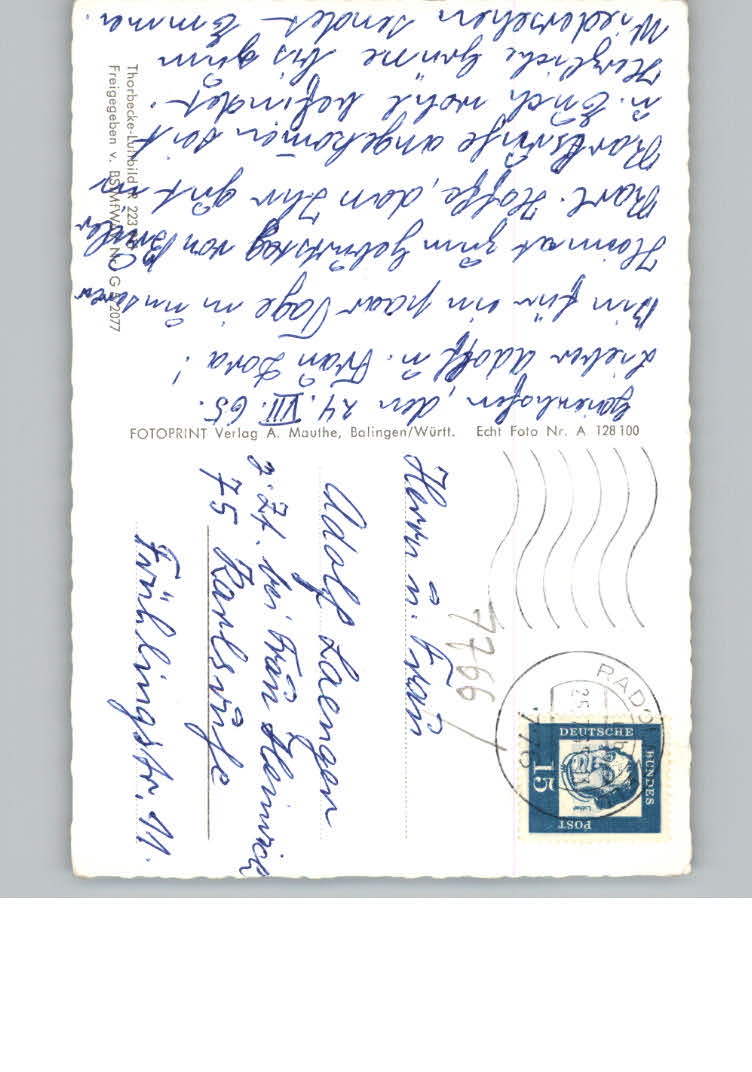 Gaienhofen, den 24. VII. 65.
Lieber Adolf u. Frau Dora!
Bin für ein paar Tage in unserer
Heimat zum Geburtstag von Bruder
Karl. Hoffe, dass Ihr gut in
Karlsruhe angekomen seit
u. Euch wohl befindet.
Herzliche Grüsse bis zum
Wiedersehen sendet Emma.
Thorbecke-Luftbild R 223
Freigegeben v. BSTMfW Nr. G 2077
FOTOPRINT Verlag A. Mauthe, Balingen/Württ. Echt Foto Nr. A 128100
Herrn u. Frau
Adolf Laengen
z. Zt. bei Frau Heinrich
75 Karlsruhe
Frühlingstr. 11.
7766
RADO
DEUTSCHE
BUNDES
POST
15
Luther